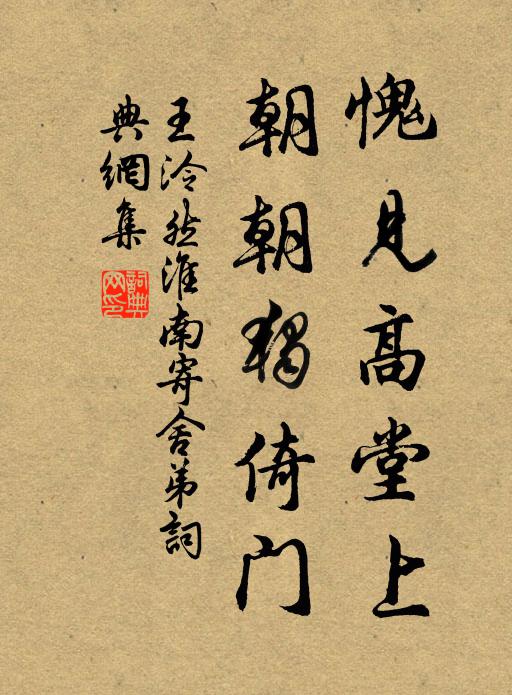 愧見高堂上
朝朝獨倚門
王泠然淮南寄舍弟詞
典網集
詞典网印